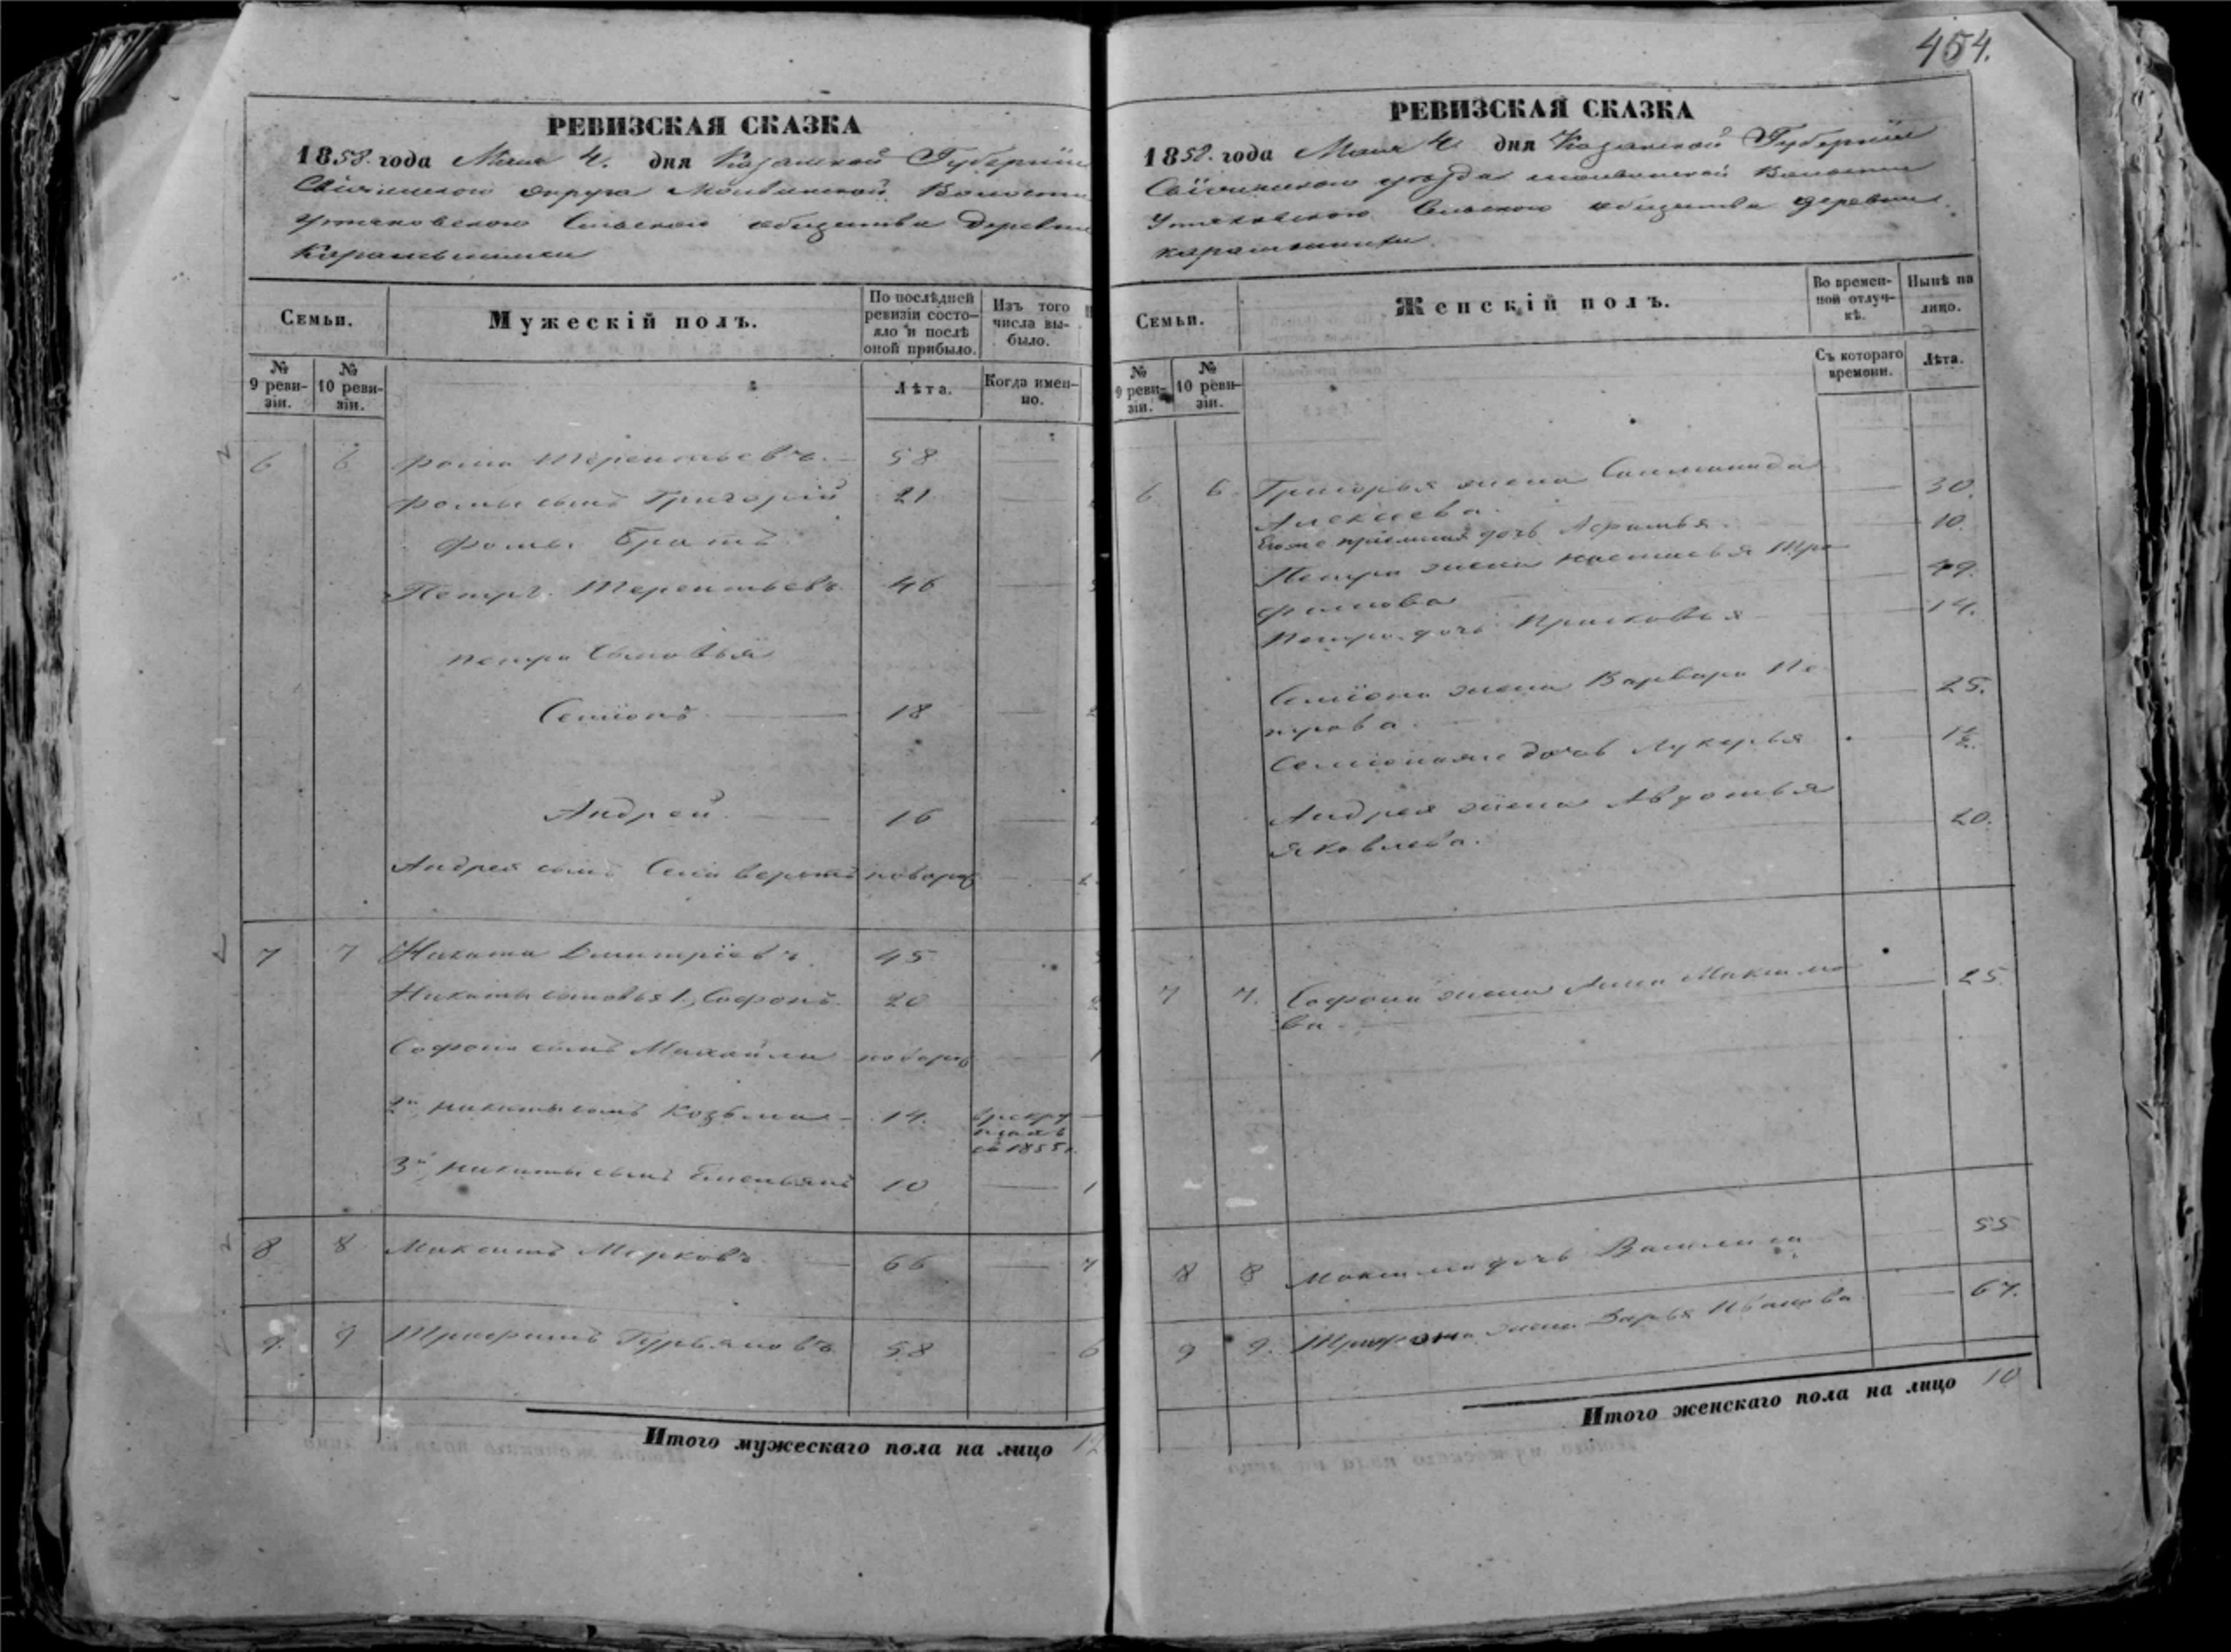 454.
РЕВИЗСКАЯ СКАЗКА
1858. года Мая 4. дня Казанской Губернии
округа Волости
Утяковского Сельского общества Деревни
Семьи.
Мужескій полъ.
По послѣдней ревизіи состо-
яло и послѣ
оной прибыло.
Изъ того
числа вы-
было.
№
9 реви-
зіи.
№
10 реви-
зіи.
Лѣта.
Когда имен-
но.
6 6 Фома Терентьевъ. 58
Фомы сынъ Григорій 21
Фомы Братъ
Петръ Терентьевъ 46
Петра Сыновья
Семіонъ 18
Андрей 16
Андрея сынъ новорож
7 7 Никита Дмитріевъ 45
Никиты сыновья 1, Софонъ 20
Софона сынъ Михайла новорож
2й, Никиты сынъ Козьма 14. в рекру
тахъ
съ 1855 г.
3й, Никиты сынъ Емельянъ 10 1
8 8 Максимъ Марковъ 66
9. 9 Трофимъ Гурьяновъ 58 6
Итого мужескаго пола на лицо 12
РЕВИЗСКАЯ СКАЗКА
1858. года Мая 4. дня Казанской Губерніи
уѣзда Волости
Утяковского Сельского общества деревни
Семьи.
Женскій полъ.
Во времен-
ной отлуч-
кѣ.
Нынѣ на
лицо.
№
9 реви-
зіи.
№
10 реви-
зіи.
Съ котораго
времени.
Лѣта.
6 6. Григорья жена
Алексеева. 30.
Его же дочь 10.
Петра жена Настасья Тро
фимова 49.
Петра дочь Прасковья 14.
Семіона жена Варвара Пе
трова. 25.
Семіона дочь Лукерья 1½.
Андрея жена Авдотья
Яковлева. 20.
7 7. Софона жена Анна Максимо
ва. 25
8 8 Максима дочь Василиса 55
9 9. Трофима жена Дарья Иванова 67.
Итого женскаго пола на лицо 10